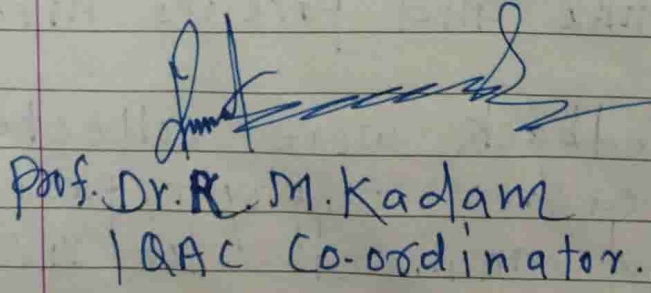 Prof. Dr. R. M. Kadam
IQAC Co-ordinator.